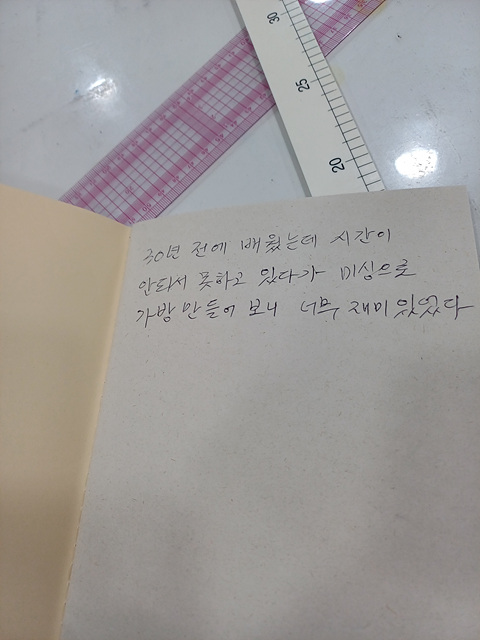 30
25
20
30년 전에 배웠는데 시간이
안되서 못하고 있다가 미싱으로
가방 만들어 보니 너무 재미있었다